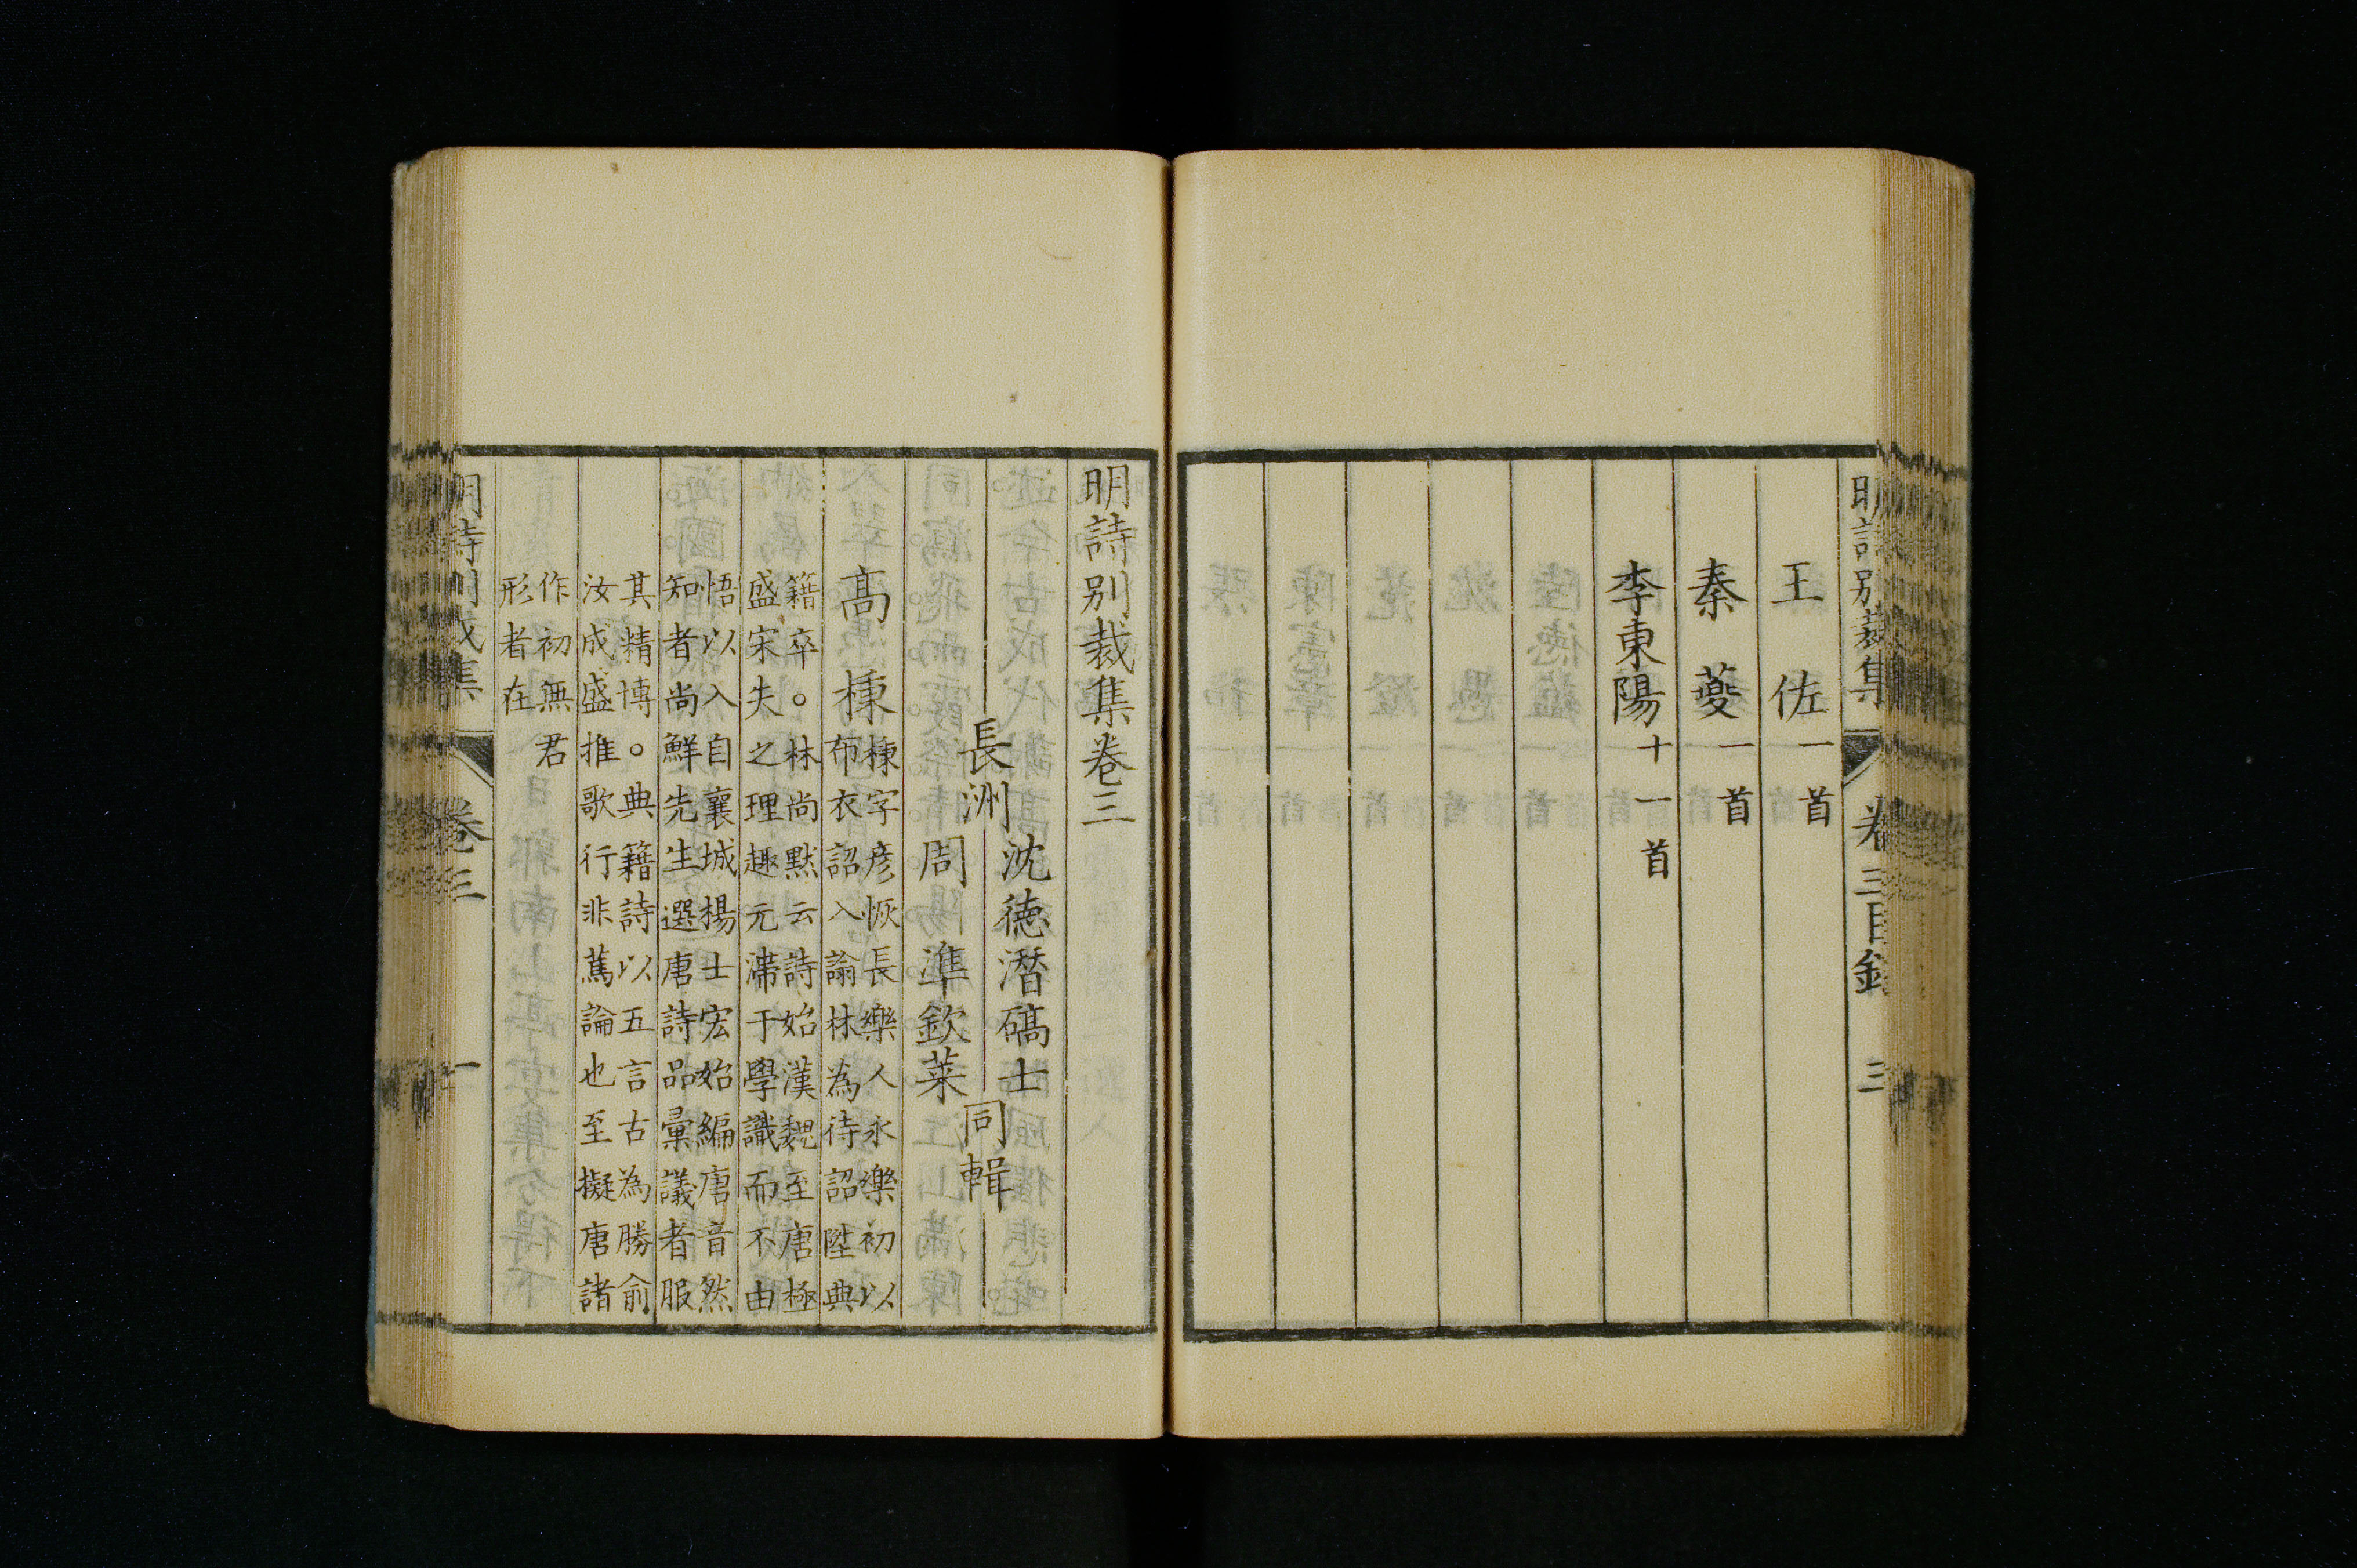 明詩別裁集
卷三目錄
三
王佐一首
秦夔一首
李東陽十一首
明詩別裁集卷三
長洲
沈德潛碻士
周準欽萊
同輯
高棅
棅字彦恢長樂人永樂初以
布衣詔入翰林為待詔陞典
籍卒。林尚默云詩始漢魏至唐極
盛宋失之理趣元滯于學識而不由
悟以入自襄城楊士宏始編唐音然
知者尚鮮先生選唐詩品彙議者服
其精博。典籍詩以五言古為勝俞
汝成盛推歌行非萬論也至擬唐諸
作初無君
形者在
明詩別裁集
卷三
一